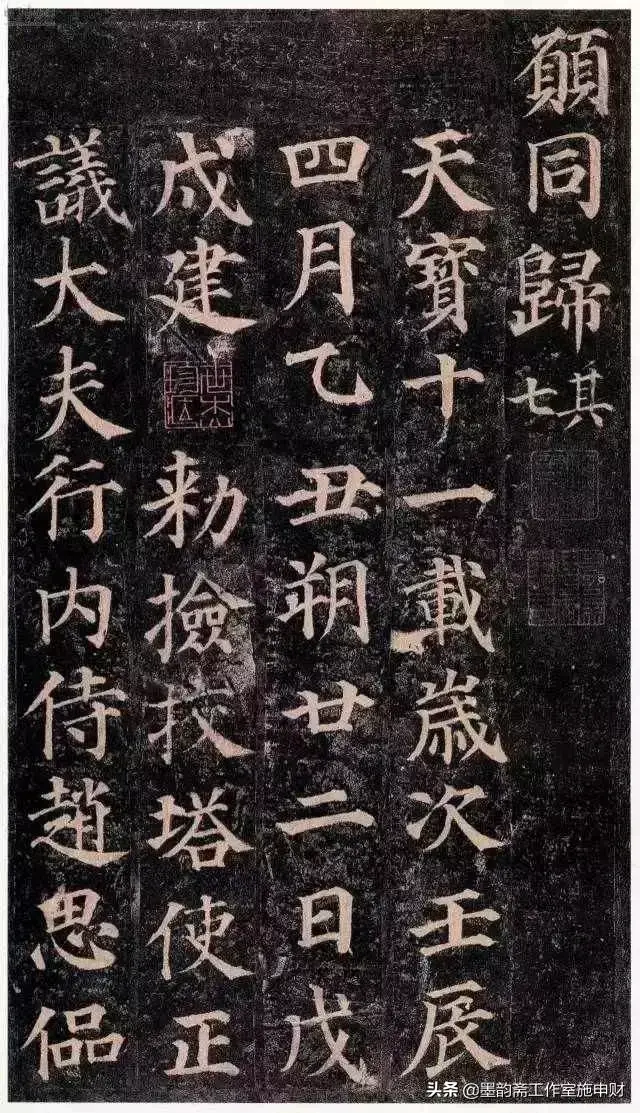 願同歸 其七
天寶十一載歲次壬辰
四月乙丑朔廿二日戊
戌建 勑撿挍塔使正
議大夫行内侍趙思偘
头条 @墨韵斋工作室施申财